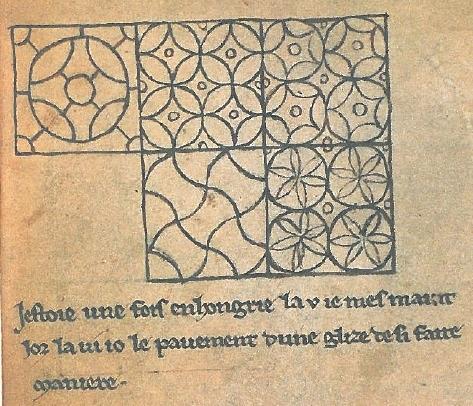 Jestoie une fois enhongrie la v ie mes maint
Jor la ui io le pauement dune glize de si faite
maniere.